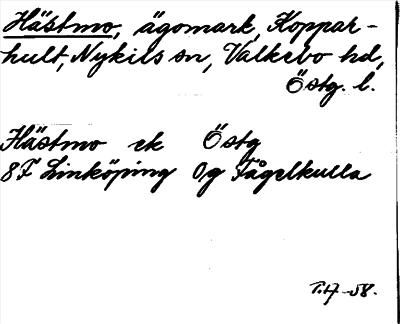 Hästmo, ägomark, Koppar-
hult, Nykils sn, Valkebo hd,
Östg. l.
Hästmo ek Östg
8F Linköping 0g Fågelkulla